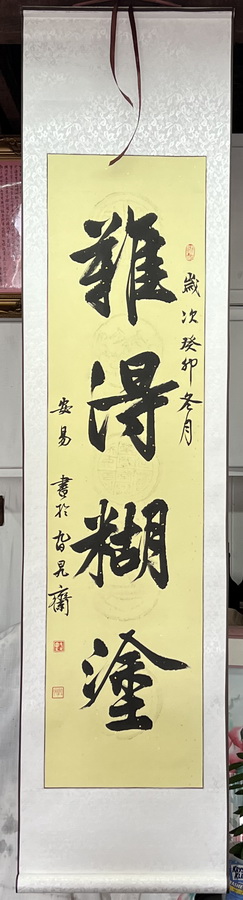 歲次癸卯冬月
難得糊塗
安易 書於